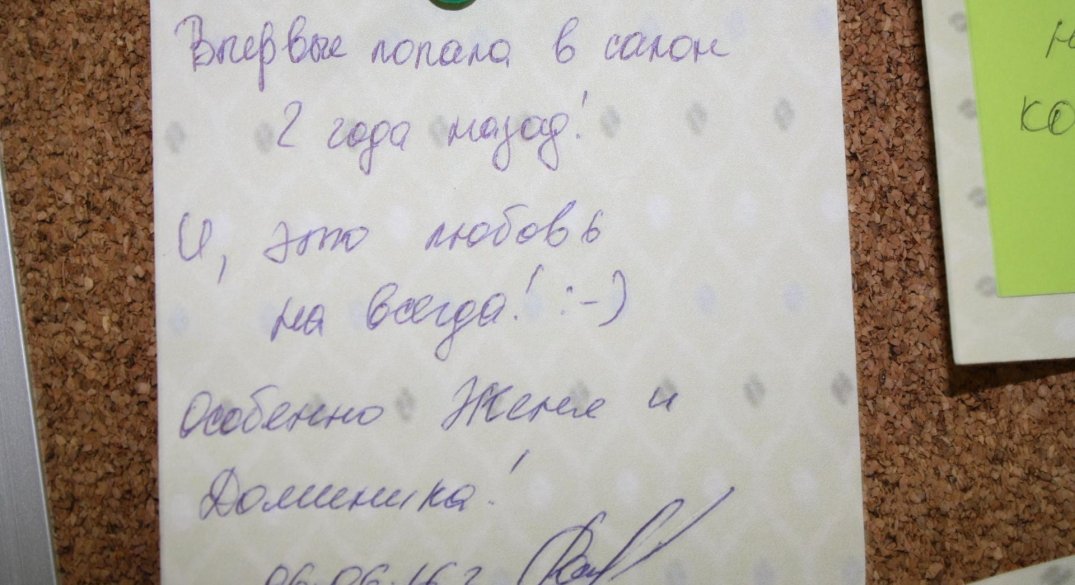 Впервые попала в салон
2 года назад!
И, это любовь
на всегда! :-)
Особенно Женя и
Доминика!
06.06.16 г
н
ко